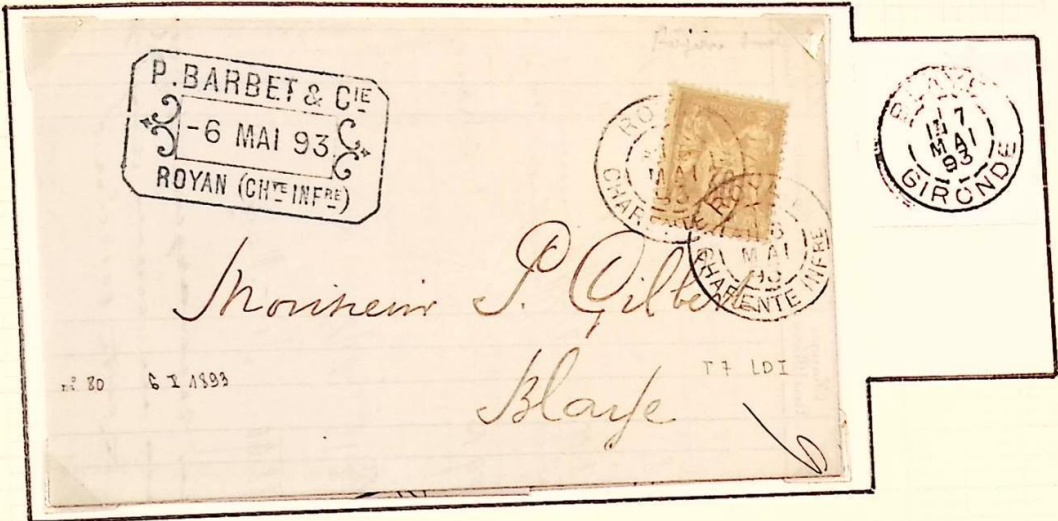 P. BARBET & CIE
-6 MAI 93
ROYAN (CHTE INFRE)
RO
MAI
93
CHARENTE
ROYAN
6
MAI
93
CHARENTE INFRE
BLAYE
7
MAI
93
GIRONDE
Monsieur P. Gilbert
Blaye
n° 80 6 I 1893
T 7 LDI
6